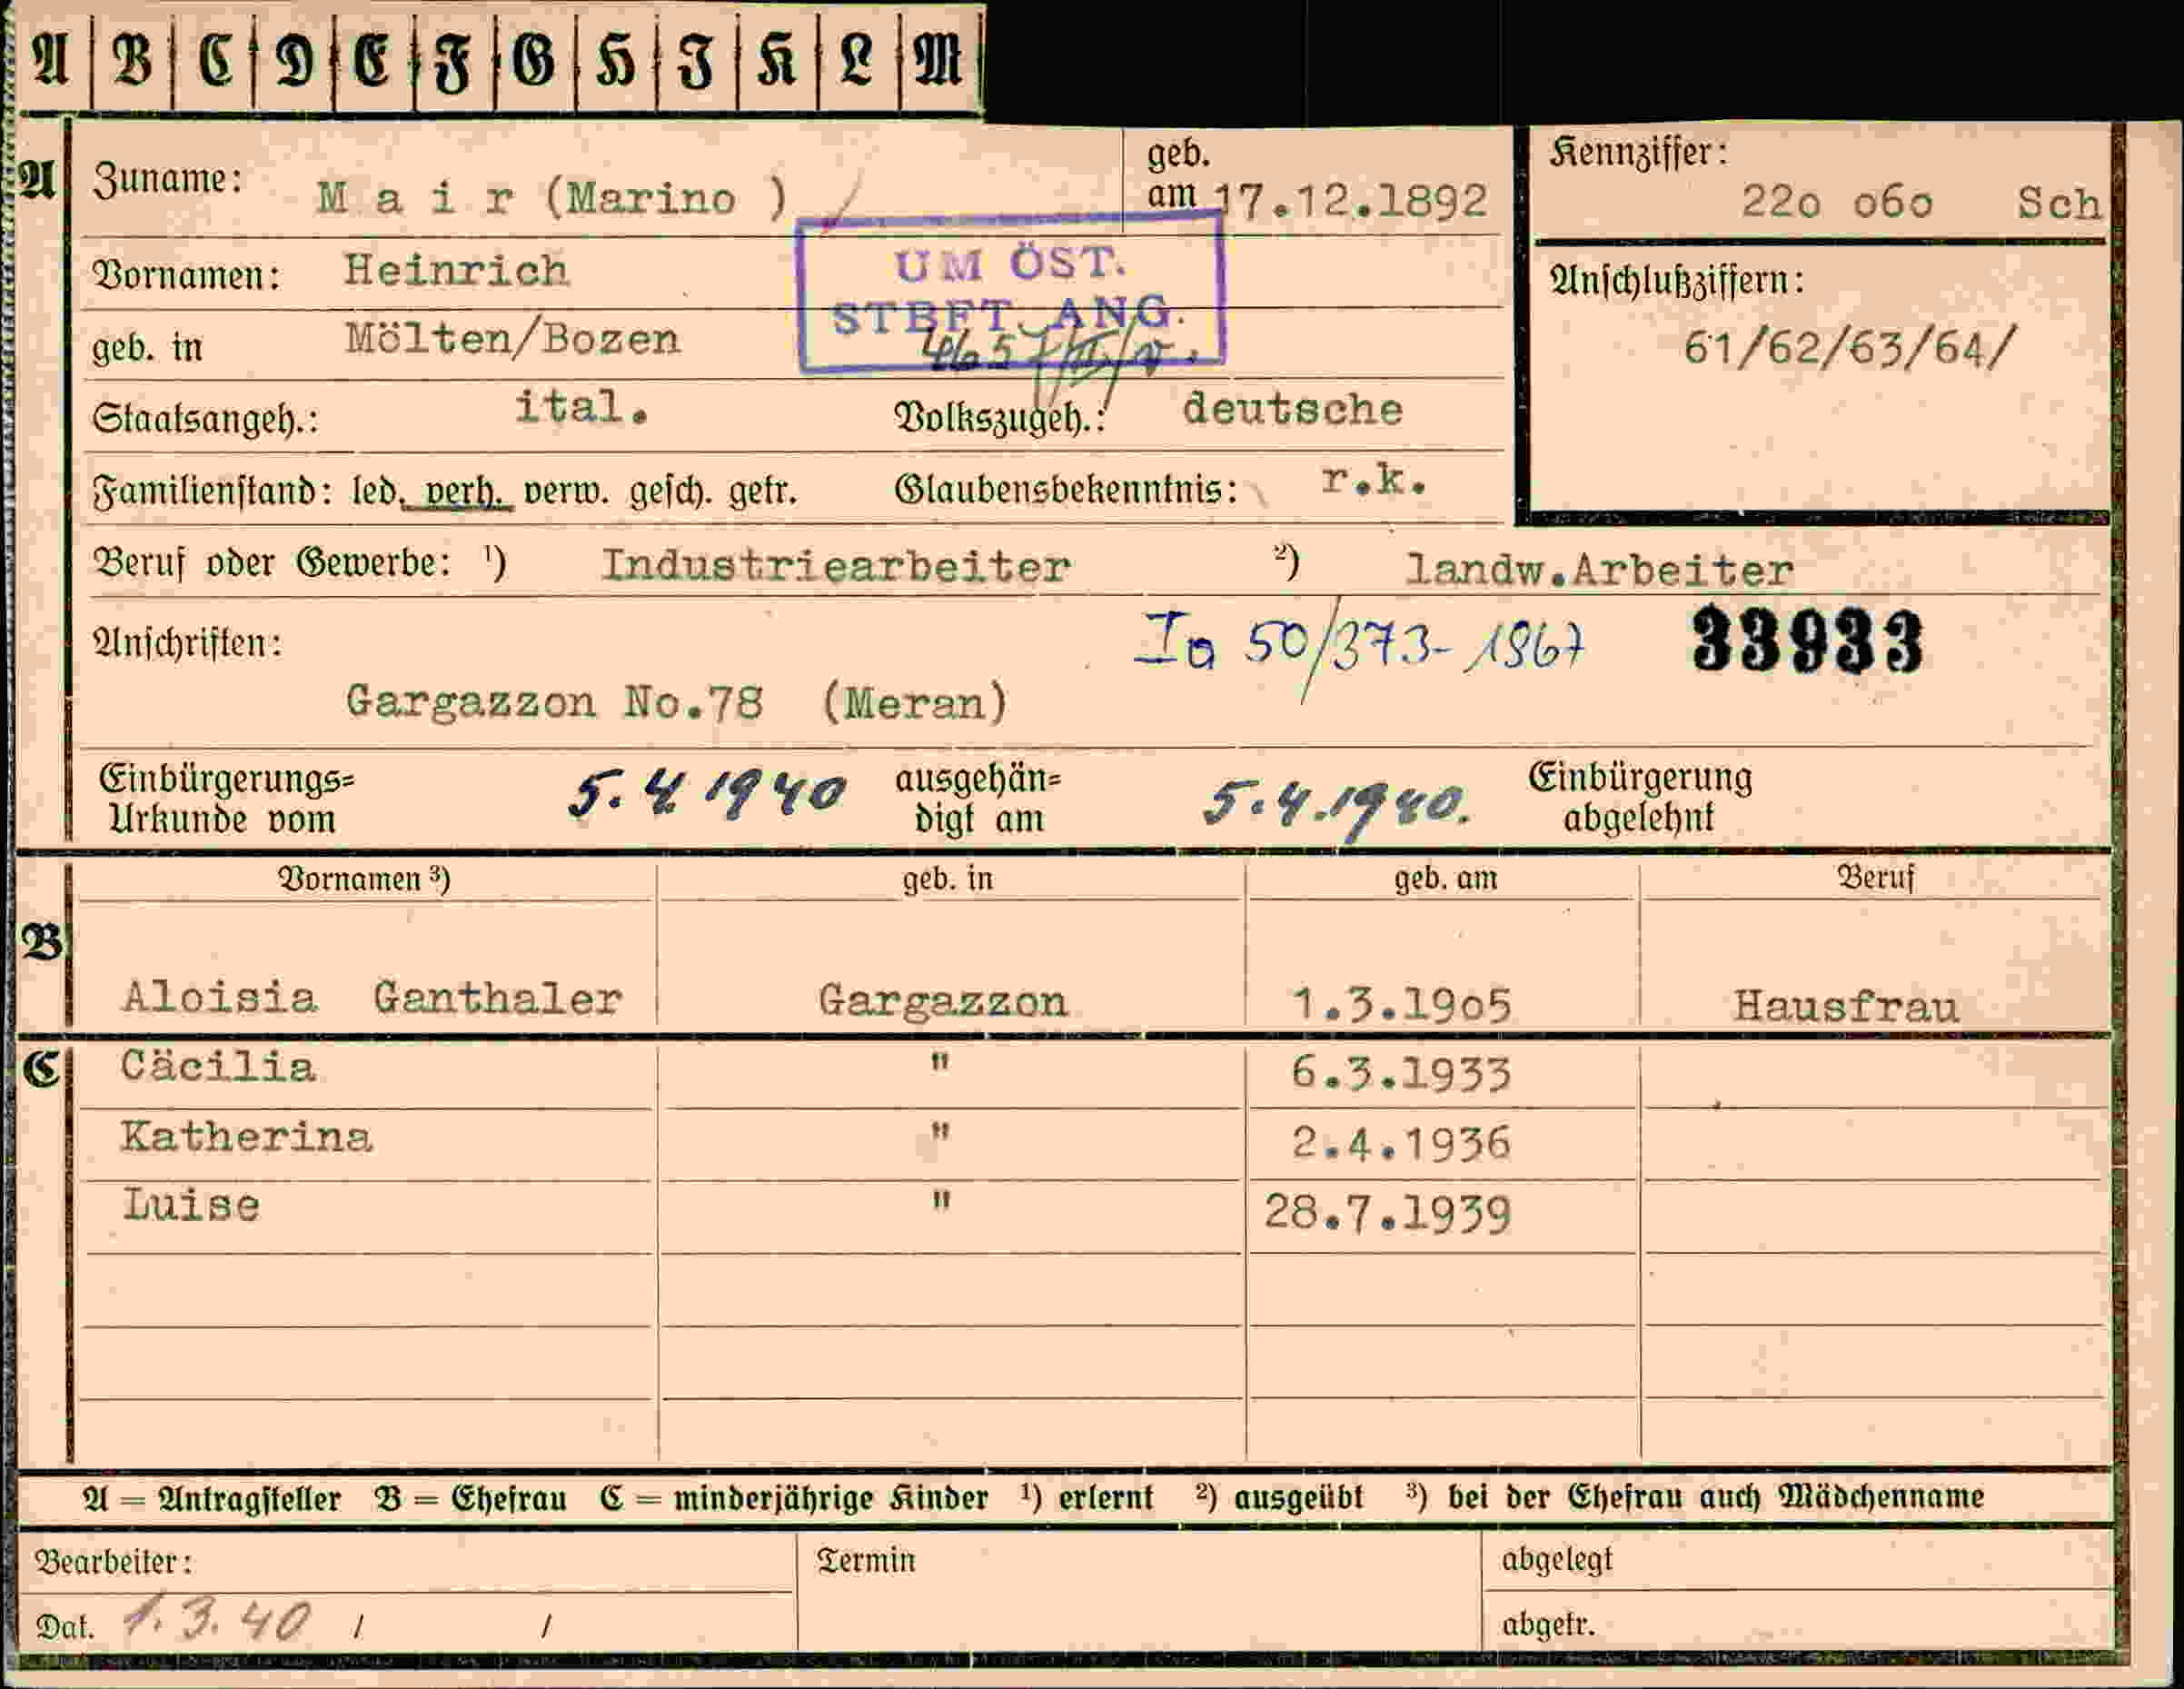 A B C D E F G H J K L M
A Zuname: M a i r (Marino ) geb. am 17.12.1892 Kennziffer: 22o o6o Sch
Vornamen: Heinrich
UM ÖST.
STBFT. ANG.
Anschlußziffern:
geb. in Mölten/Bozen
61/62/63/64/
Staatsangeh.: ital. Volkszugeh.: deutsche
Familienstand: led. verh. verw. gesch. getr. Glaubensbekenntnis: r.k.
Beruf oder Gewerbe: ¹) Industriearbeiter ²) landw.Arbeiter
Anschriften: Ia 50/373-1967 33933
Gargazzon No.78 (Meran)
Einbürgerungs= ausgehän= Einbürgerung
Urkunde vom 5.4 1940 digt am 5.4.1940. abgelehnt
Vornamen ³) geb. in geb. am Beruf
B
Aloisia Ganthaler Gargazzon 1.3.19o5 Hausfrau
C Cäcilia " 6.3.1933
Katherina " 2.4.1936
Luise " 28.7.1939
A = Antragsteller B = Ehefrau C = minderjährige Kinder ¹) erlernt ²) ausgeübt ³) bei der Ehefrau auch Mädchenname
Bearbeiter: Termin abgelegt
Dat. 1.3.40 / / abgetr.